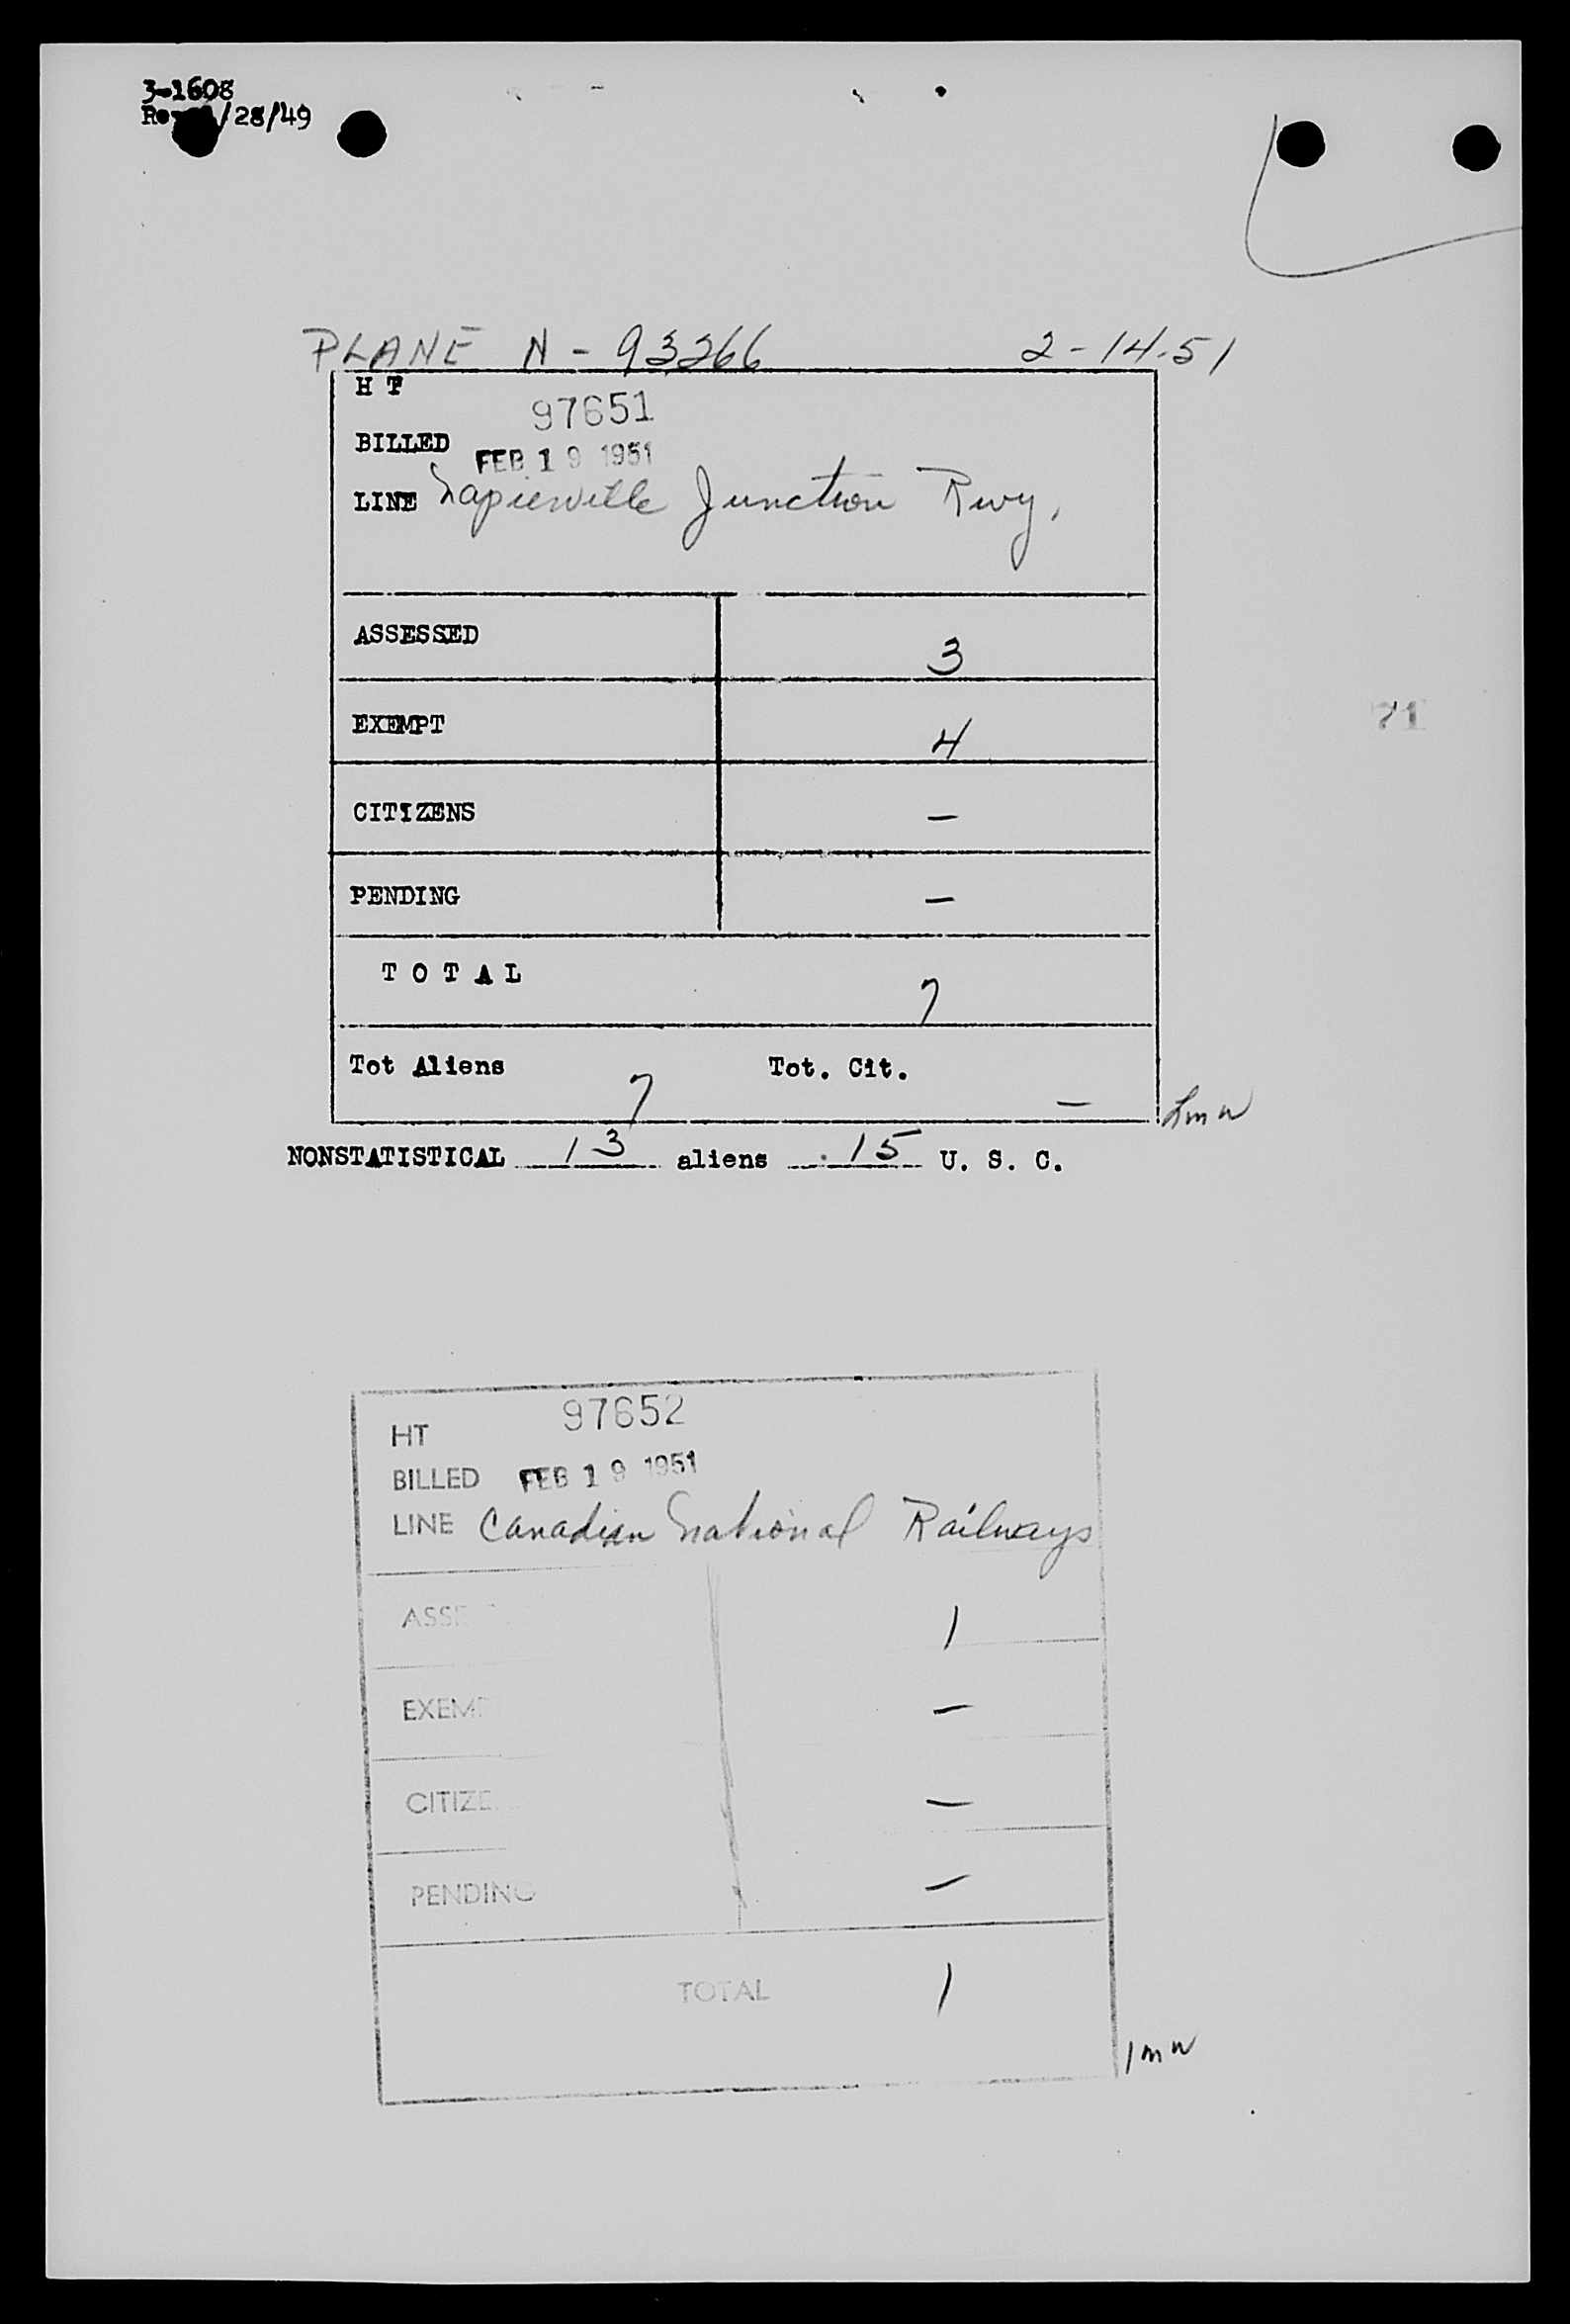 3-1608
/28/49
PLANE N - 93266 2-14-51
H T
97651
BILLED FEB 19 1951
LINE Napierville Junction Rwy.
ASSESSED 3
EXEMPT 4
71
CITIZENS —
PENDING —
T O T A L 7
Tot Aliens 7 Tot. Cit. —
Lmw
NONSTATISTICAL 13 aliens 15 U. S. C.
97652
HT
BILLED FEB 19 1951
LINE Canadian National Railways
ASSE 1
EXEMP —
CITIZE —
PENDING —
TOTAL 1
lmw